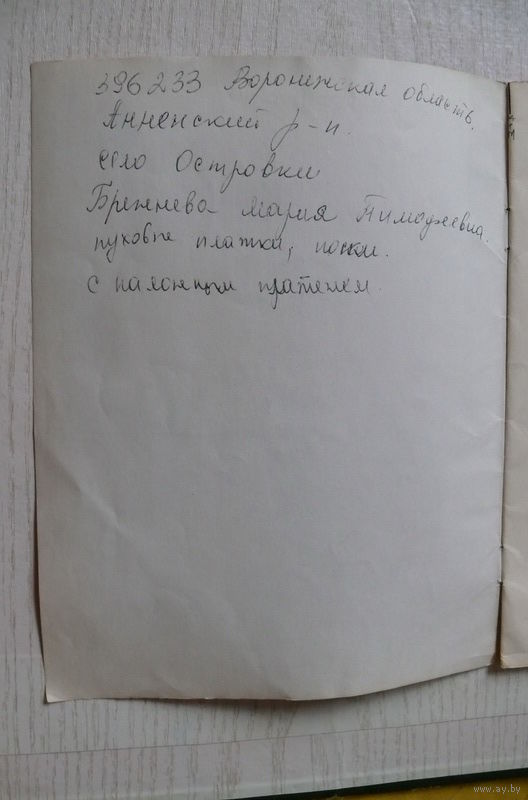 396233 Воронежская область,
Анненский р-н.
село Островки
Брежнева Мария Тимофеевна.
пуховые платки, носки.
с наложным платежем.
www.ay.by